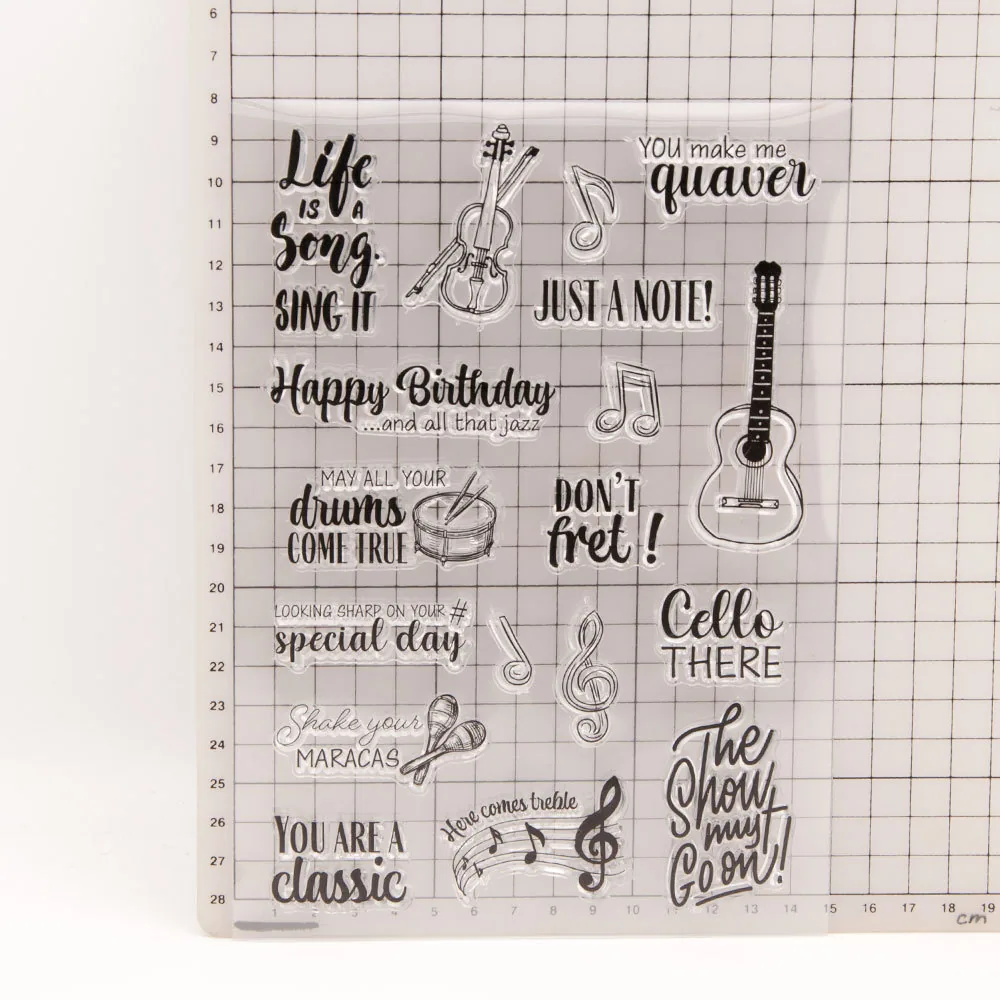 Life
IS A
Song.
SING IT
YOU make me
quaver
JUST A NOTE!
Happy Birthday
...and all that jazz
MAY ALL YOUR
drums
COME TRUE
DON'T
fret!
LOOKING SHARP ON YOUR #
special day
Cello
THERE
Shake your
MARACAS
The
Show
must
Go on!
YOU ARE A
classic
Here comes treble
6
7
8
9
10
11
12
13
14
15
16
17
18
19
20
21
22
23
24
25
26
27
28
1 2 3 4 5 6 7 8 9 10 11 12 13 14 15 16 17 18 19
cm